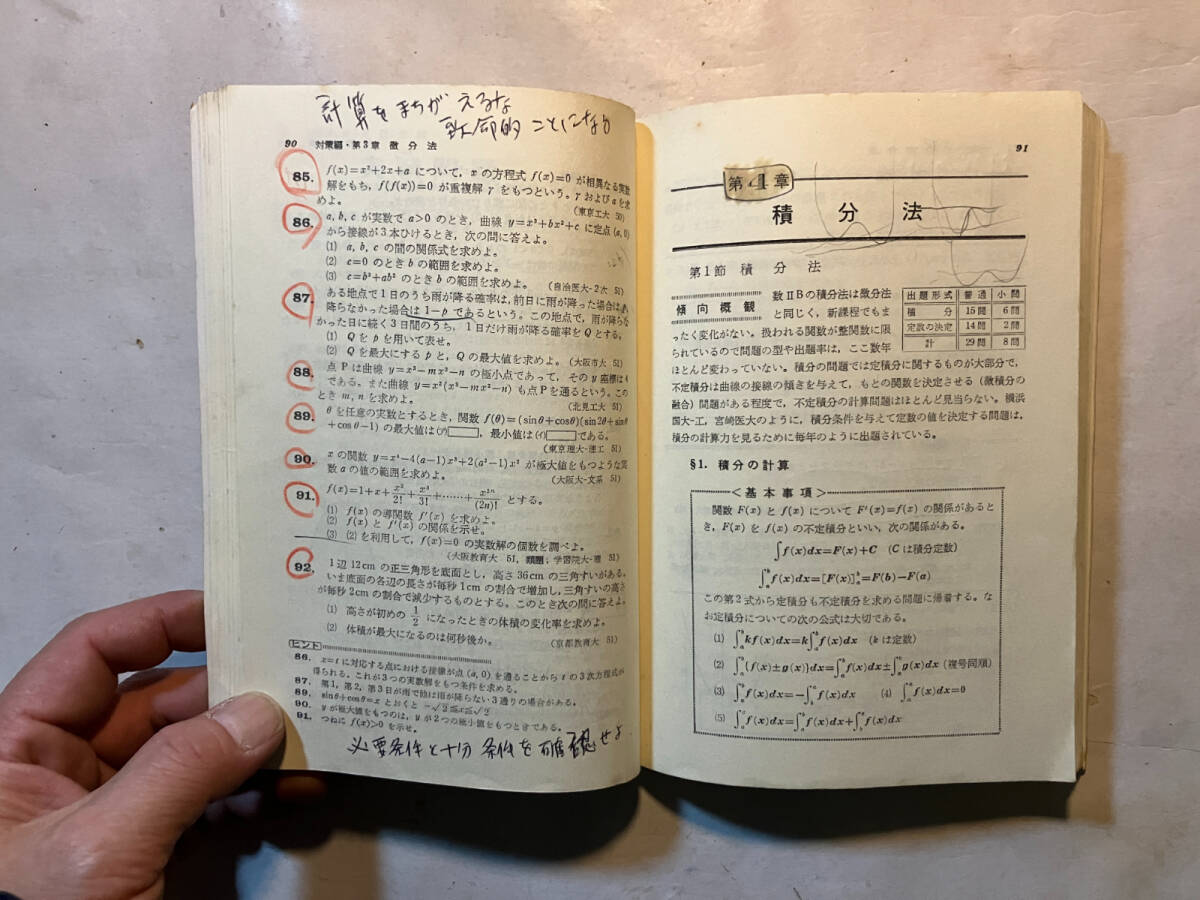 計算をまちがえるな
致命的ことになる
90 対策編・第3章 微分法
85. f(x)=x²+2x+a について，x の方程式 f(x)=0 が相異なる実数
解をもち，f(f(x))=0 が重複解 γ をもつという。γ および a を求
めよ。 (東京工大 50)
86. a, b, c が実数で a>0 のとき，曲線 y=x³+bx²+c に定点 (a, 0)
から接線が3本ひけるとき，次の問に答えよ。
(1) a, b, c の間の関係式を求めよ。
(2) c=0 のとき b の範囲を求めよ。
(3) c=b³+ab² のとき b の範囲を求めよ。 (自治医大-2次 51)
87. ある地点で1日のうち雨が降る確率は，前日に雨が降った場合は p,
降らなかった場合は 1-p であるという。この地点で，雨が降らな
かった日に続く3日間のうち，1日だけ雨が降る確率を Q とする。
(1) Q を p を用いて表せ。
(2) Q を最大にする p と，Q の最大値を求めよ。(大阪市大 51)
88. 点 P は曲線 y=x³-mx²-n の極小点であって，その y 座標は
である。また曲線 y=x²(x³-mx²-n) も点 P を通るという。この
とき m, n を求めよ。 (北見工大 51)
89. θ を任意の実数とするとき，関数 f(θ)=(sinθ+cosθ)(sin2θ+sinθ
+cosθ-1) の最大値は(ア)，最小値は(イ)である。
(東京理大-理工 51)
90. x の関数 y=x⁴-4(a-1)x³+2(a²-1)x² が極大値をもつような実
数 a の値の範囲を求めよ。 (大阪大-文系 51)
91. f(x)=1+x+x²/2!+x³/3!+……+x²ⁿ/(2n)! とする。
(1) f(x) の導関数 f′(x) を求めよ。
(2) f(x) と f′(x) の関係を示せ。
(3) (2) を利用して，f(x)=0 の実数解の個数を調べよ。
(大阪教育大 51, 類題；学習院大-理 51)
92. 1辺 12cm の正三角形を底面とし，高さ 36cm の三角すいがある。
いま底面の各辺の長さが毎秒 1cm の割合で増加し，三角すいの高さ
が毎秒 2cm の割合で減少するものとする。このとき次の問に答えよ。
(1) 高さが初めの 1/2 になったときの体積の変化率を求めよ。
(2) 体積が最大になるのは何秒後か。 (京都教育大 51)
ヒント
86. x=t に対応する点における接線が点 (a, 0) を通ることから t の3次方程式が
得られる。これが3つの実数解をもつ条件を求める。
87. 第1，第2，第3日が雨で他は雨が降らない3通りの場合がある。
89. sinθ+cosθ=x とおくと -√2≦x≦√2
90. y が極大値をもつのは，y が2つの極小値をもつときである。
91. つねに f(x)>0 を示せ。
必要条件と十分条件を確認せよ
91
第4章
積分法
第1節 積分法
傾向概観
数ⅡBの積分法は微分法
と同じく，新課程でもま
ったく変化がない。扱われる関数が整関数に限
られているので問題の型や出題率は，ここ数年
ほとんど変わっていない。積分の問題では定積分に関するものが大部分で，
不定積分は曲線の接線の傾きを与えて，もとの関数を決定させる（微積分の
融合）問題がある程度で，不定積分の計算問題はほとんど見当らない。横浜
国大-工，宮崎医大のように，積分条件を与えて定数の値を決定する問題は，
積分の計算力を見るために毎年のように出題されている。
出題形式 普通 小問
積分 15問 6問
定数の決定 14問 2問
計 29問 8問
§1. 積分の計算
＜基本事項＞
関数 F(x) と f(x) について F′(x)=f(x) の関係があると
き，F(x) を f(x) の不定積分といい，次の関係がある。
∫f(x)dx=F(x)+C (C は積分定数)
∫ₐᵇf(x)dx=[F(x)]ₐᵇ=F(b)-F(a)
この第2式から定積分も不定積分を求める問題に帰着する。な
お定積分についての次の公式は大切である。
(1) ∫ₐᵇkf(x)dx=k∫ₐᵇf(x)dx (k は定数)
(2) ∫ₐᵇ{f(x)±g(x)}dx=∫ₐᵇf(x)dx±∫ₐᵇg(x)dx (複号同順)
(3) ∫ₐᵇf(x)dx=-∫f(x)dx (4) ∫ₐᵃf(x)dx=0
(5) ∫f(x)dx=∫f(x)dx+∫f(x)dx